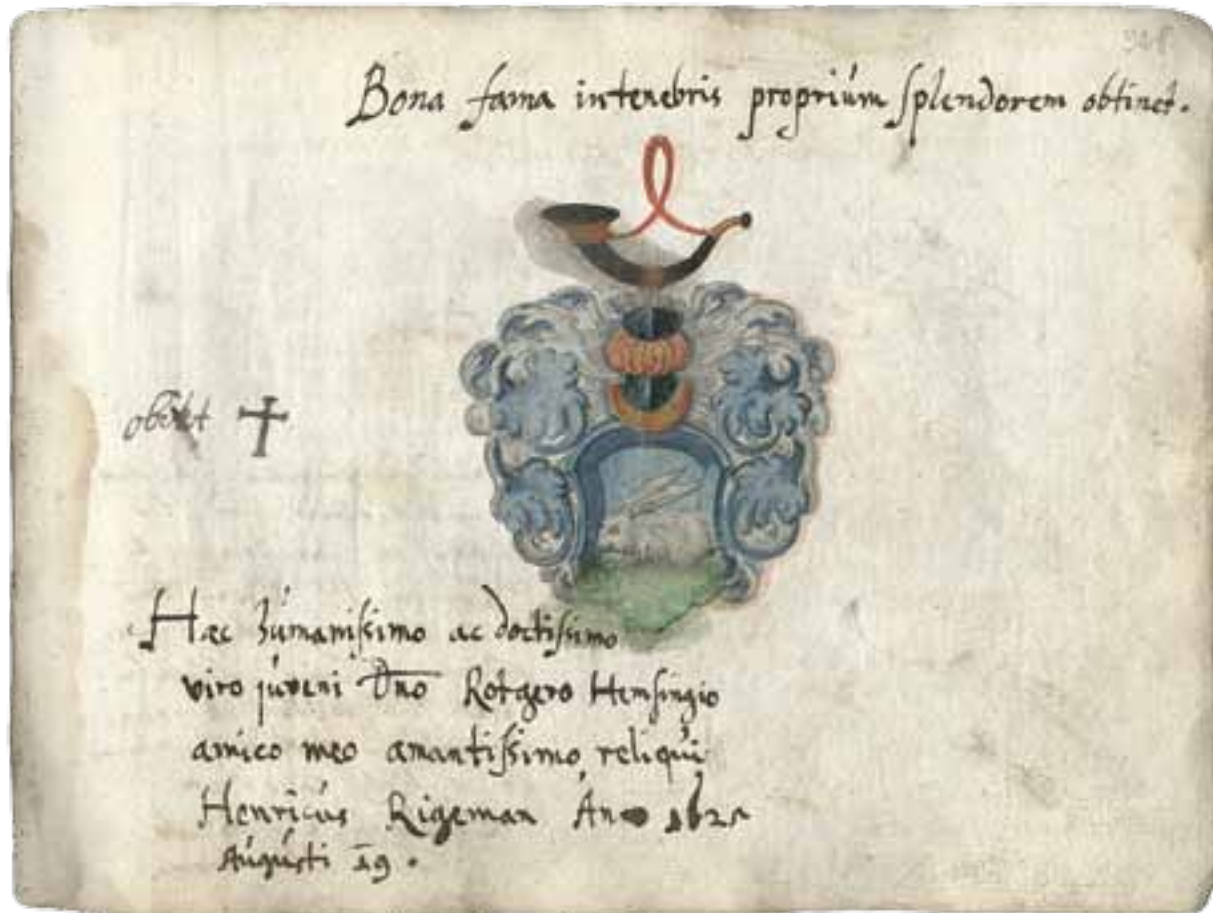 Bona fama in tenebris proprium splendorem obtinet.
obiit
Hæc humanissimo ac doctissimo
viro juveni Dno Rotgero Hemsingio
amico meo amantissimo, reliqui
Henricus Rigeman Ano 1621
Augusti 19.